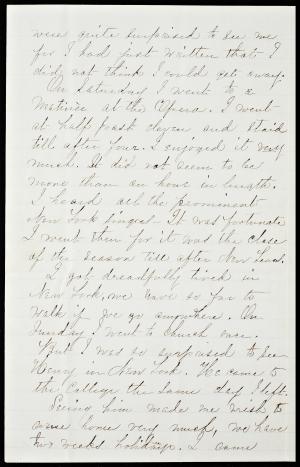 were quite surprised to see me
for I had just written that I
did not think I could get away.
On Saturday I went to a
Matinee at the Opera. I went
at half past eleven and staid
till after four. I enjoyed it very
much. It did not seem to be
more than an hour in length.
I heard all the prominent
New York singers. It was fortunate
I went then for it was the close
of the season till after New Years.
I got dreadfully tired in
New York, we have so far to
walk if we go anywhere. On
Sunday I went to church once.
But I was so surprised to see
Henry in New York. He came to
the College the same day I left.
Seeing him made me wish to
come home very much, we have
two weeks holidays. I came